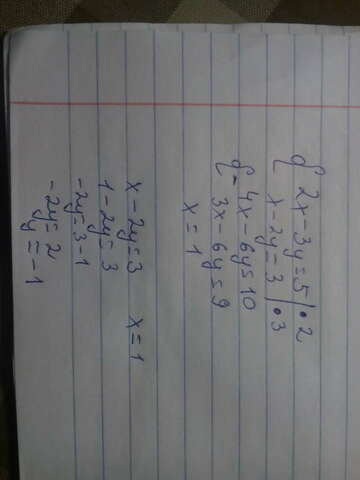 { 2x-3y=5 | • 2
x-2y=3 | • 3
{ - 4x-6y=10
3x-6y=9
x=1
x-2y=3 x=1
1-2y=3
-2y=3-1
-2y=2
y=-1